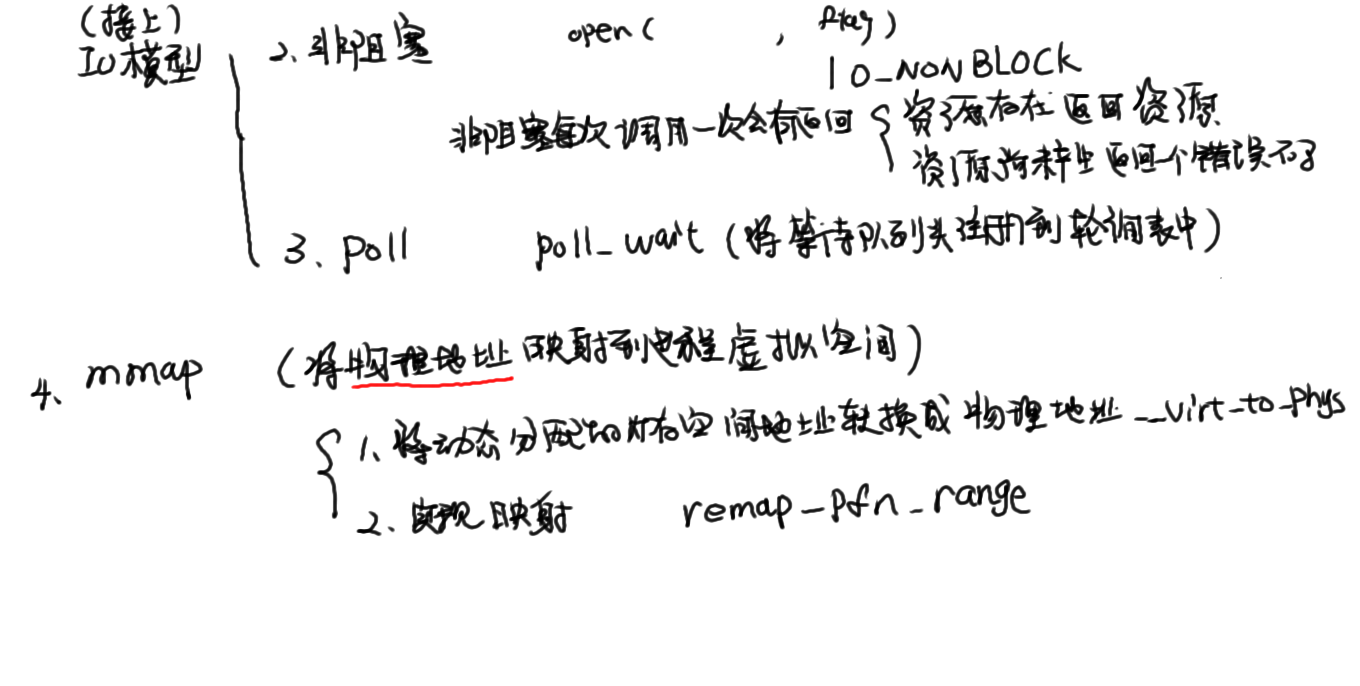 (接上)
IO模型
2、非阻塞 open( , flag)
| O_NONBLOCK
非阻塞每次调用一次会有返回
资源存在返回资源
资源尚未产生返回一个错误码
3、poll poll_wait (将等待队列头注册到轮询表中)
4、mmap (将物理地址映射到进程虚拟空间)
1、将动态分配的内存空间地址转换成物理地址 __virt_to_phys
2、实现映射 remap_pfn_range